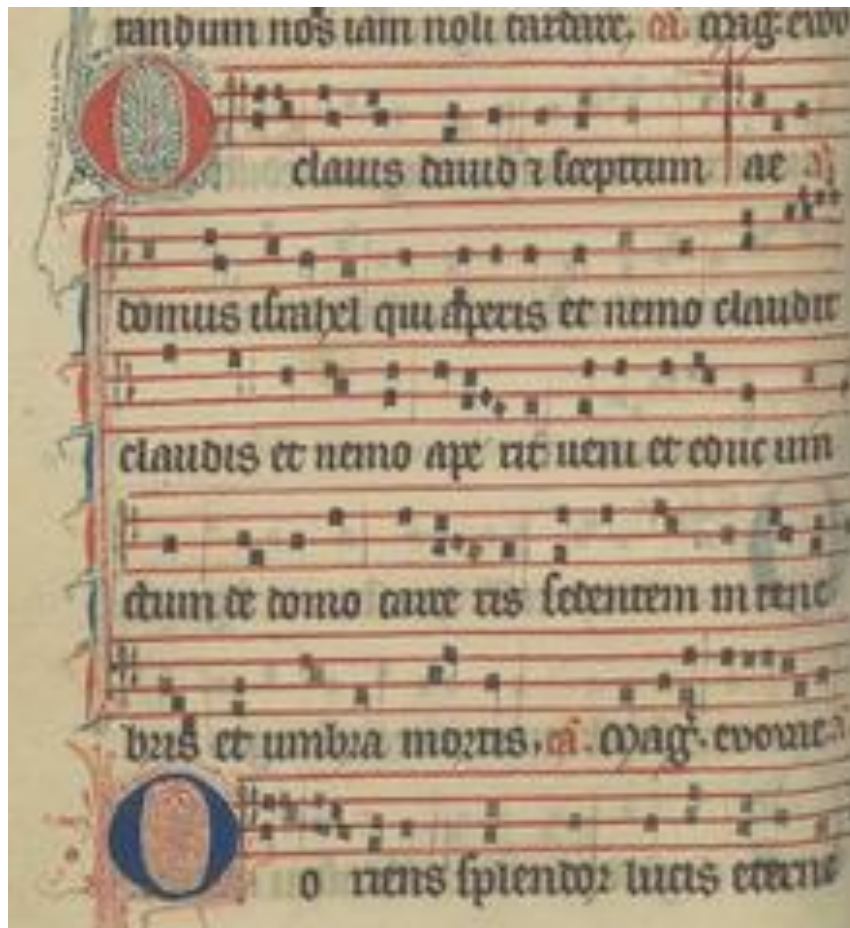 randum nos iam noli tardare. añ. mag. evo
O clauis dauid ⁊ sceptrum ae
domus israhel qui aperis et nemo claudit
claudis et nemo ape rit ueni et educ uin
ctum de domo carce ris sedentem in tene
bris et umbra mortis. cañ. Mag. evovae.
O o riens splendor lucis eterne